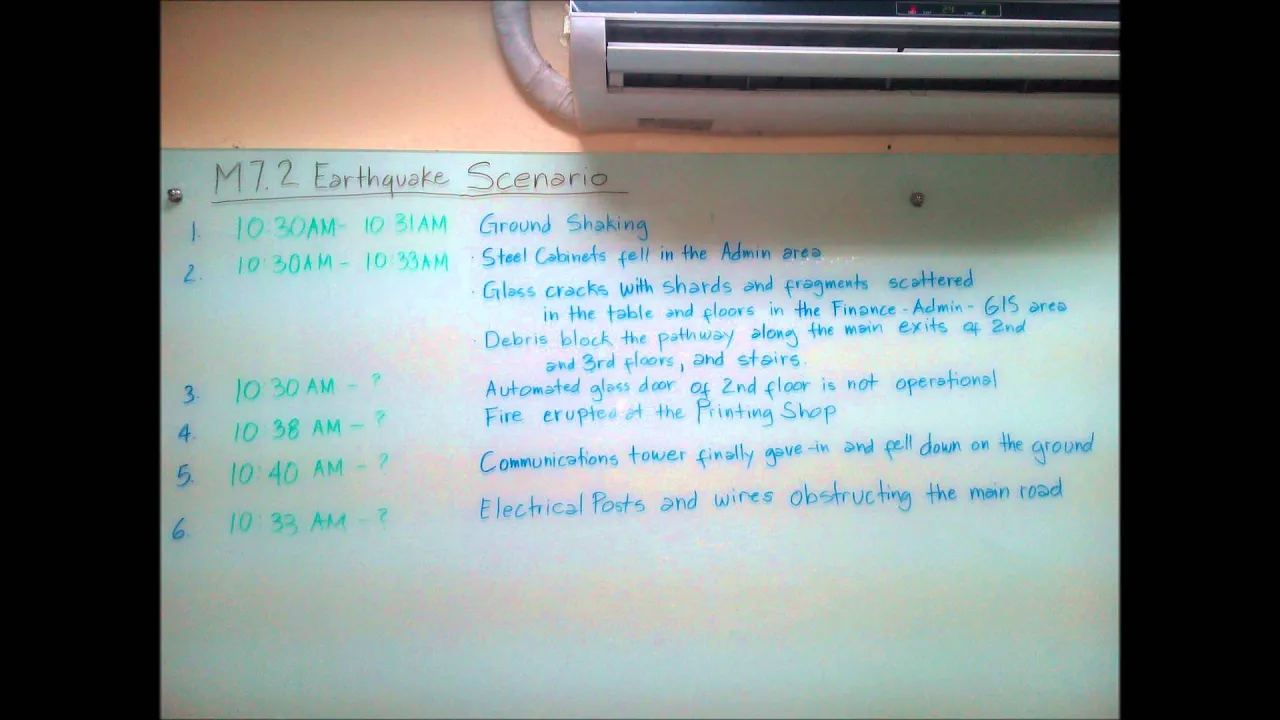 24
M7.2 Earthquake Scenario
1. 10:30AM- 10 31AM Ground Shaking
2. 10:30AM - 10:33AM · Steel Cabinets fell in the Admin area
· Glass cracks with shards and fragments scattered
in the table and floors in the Finance-Admin-GIS area
· Debris block the pathway along the main exits of 2nd
and 3rd floors, and stairs.
3. 10 30 AM - ? Automated glass door of 2nd floor is not operational
4. 10 38 AM - ? Fire erupted at the Printing Shop
5. 10:40 AM - ? Communications tower finally gave-in and fell down on the ground
6. 10:33 AM - ? Electrical Posts and wires obstructing the main road